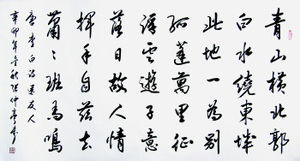 青山橫北郭
白水繞東城
此地一為別
孤蓬萬里征
浮雲遊子意
落日故人情
揮手自茲去
蕭々班馬鳴
唐李白詩送友人
辛卯年秋張仲亭